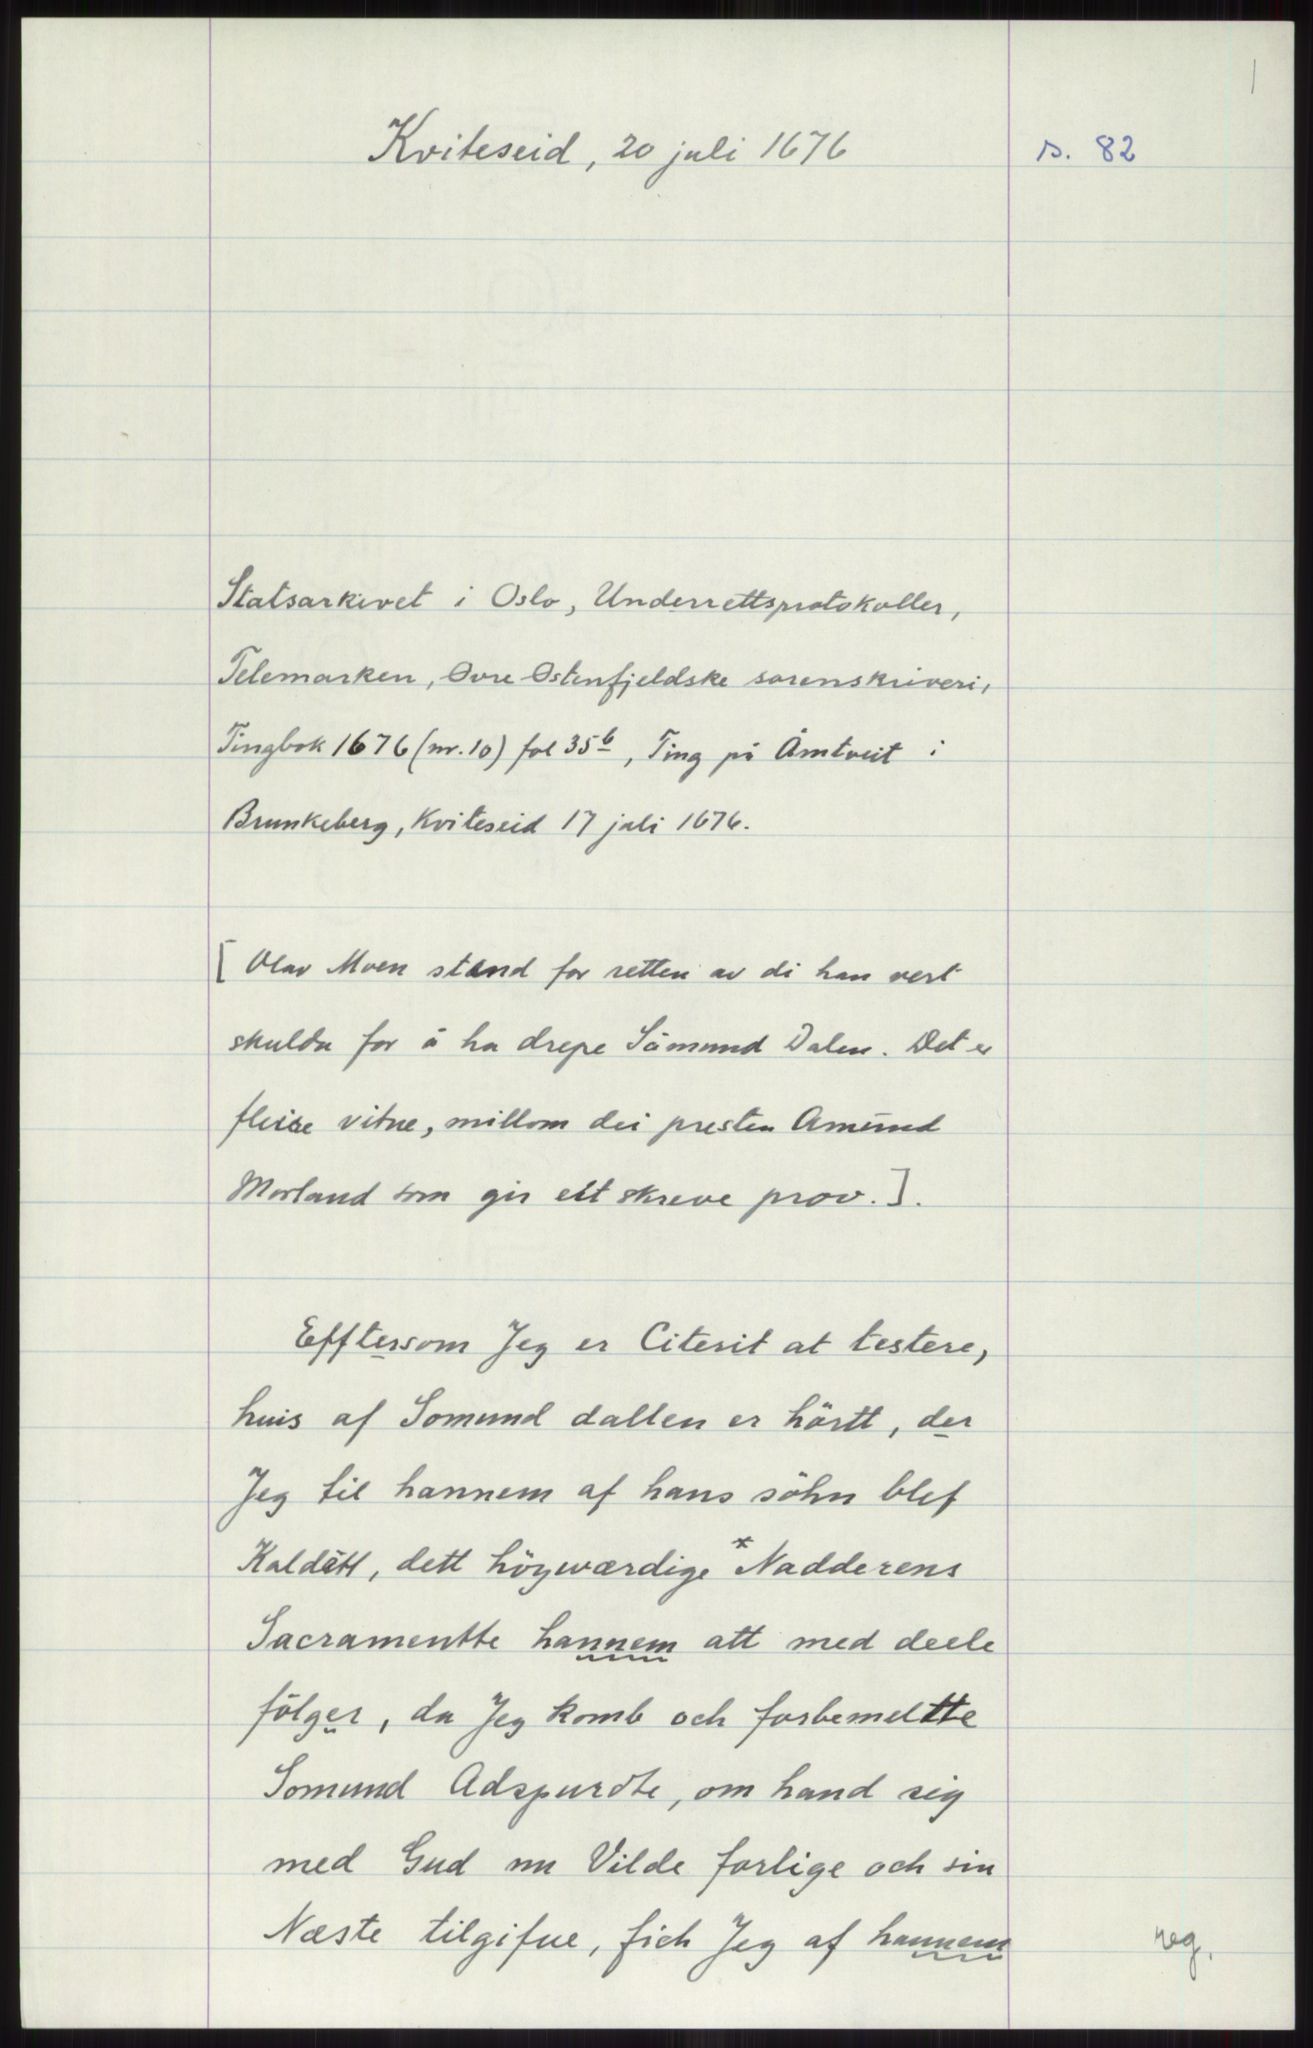 1
Kviteseid, 20 juli 1676
s. 82
Statsarkivet i Oslo, Underrettsprotokoller,
Telemarken, Øvre Østenfjeldske sorenskriveri,
Tingbok 1676 (nr. 10) fol 35b, Ting på Åmtveit i
Brunkeberg, Kviteseid 17 juli 1676.
[Olav Moen stend for retten av di han vert
skulda for å ha drepe Såmund Dalen. Det er
fleire vitne, millom dei presten Amund
Morland som gir eit skreve prov.].
Efftersom Jeg er Citerit at testere,
huis af Somund dallen er hörtt, der
Jeg til hannem af hans söhn blef
Kaldett, dett höyværdige *Nadderens
Sacramentte hannem att med deele
fölger, da Jeg komb och forbemeltte
Somund Adspurdte, om hand sig
med Gud nu Vilde forlige och sin
Næste tilgifue, fich Jeg af hannem
reg.